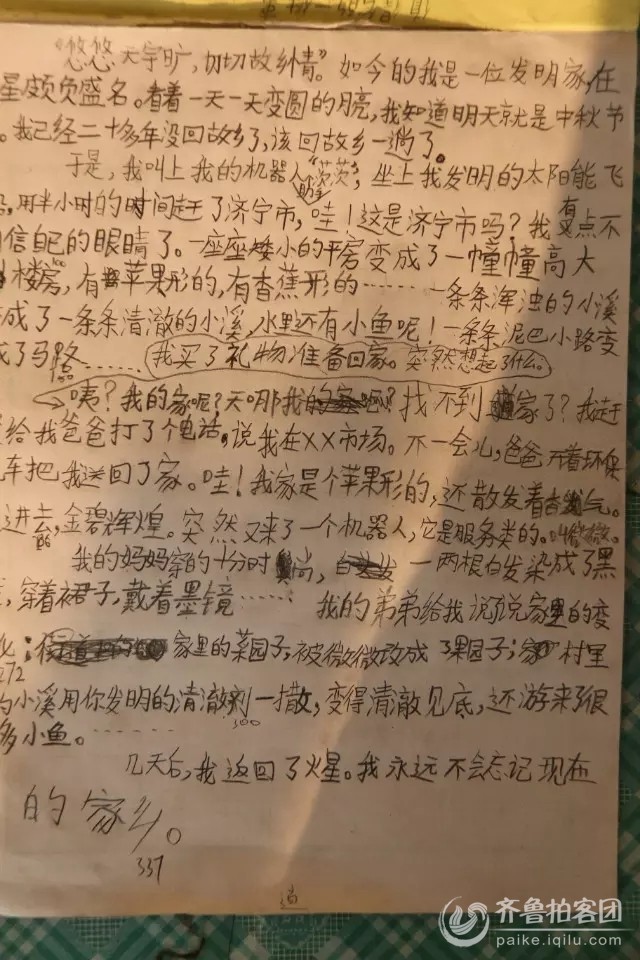 "悠悠天宇旷,切切故乡情"。如今的我是一位发明家,在
星颇负盛名。看着一天一天变圆的月亮,我知道明天就是中秋节
。我已经二十多年没回故乡了,该回故乡一趟了。
于是,我叫上我的机器人"茨茨",坐上我发明的太阳能飞
,用半小时的时间赶了济宁市,哇!这是济宁市吗?我有点不
信自己的眼睛了。一座座矮小的平房变成了一幢幢高大
楼房,有苹果形的,有香蕉形的……一条条浑浊的小溪
成了一条条清澈的小溪,水里还有小鱼呢!一条条泥巴小路变
成了马路……我买了礼物准备回家。突然想起了什么。
咦?我的家呢?天哪我的 找不到家了?我赶
给我爸爸打了个电话,说我在XX市场。不一会儿,爸爸开着环保
车把我送回了家。哇!我家是个苹果形的,还散发着香气。
进去,金碧辉煌。突然又来了一个机器人,它是服务类的。叫微微。
我的妈妈穿的十分时尚,一两根白发染成了黑
,穿着裙子,戴着墨镜…… 我的弟弟给我说了说家里的变
化: 家里的菜园子,被微微改成了果园子;村里
272
的小溪用你发明的清澈剂一撒,变得清澈见底,还游来了很
300
多小鱼。……
几天后,我返回了火星。我永远不会忘记现在
的家乡。
337
齐鲁拍客团
paike.iqilu.com